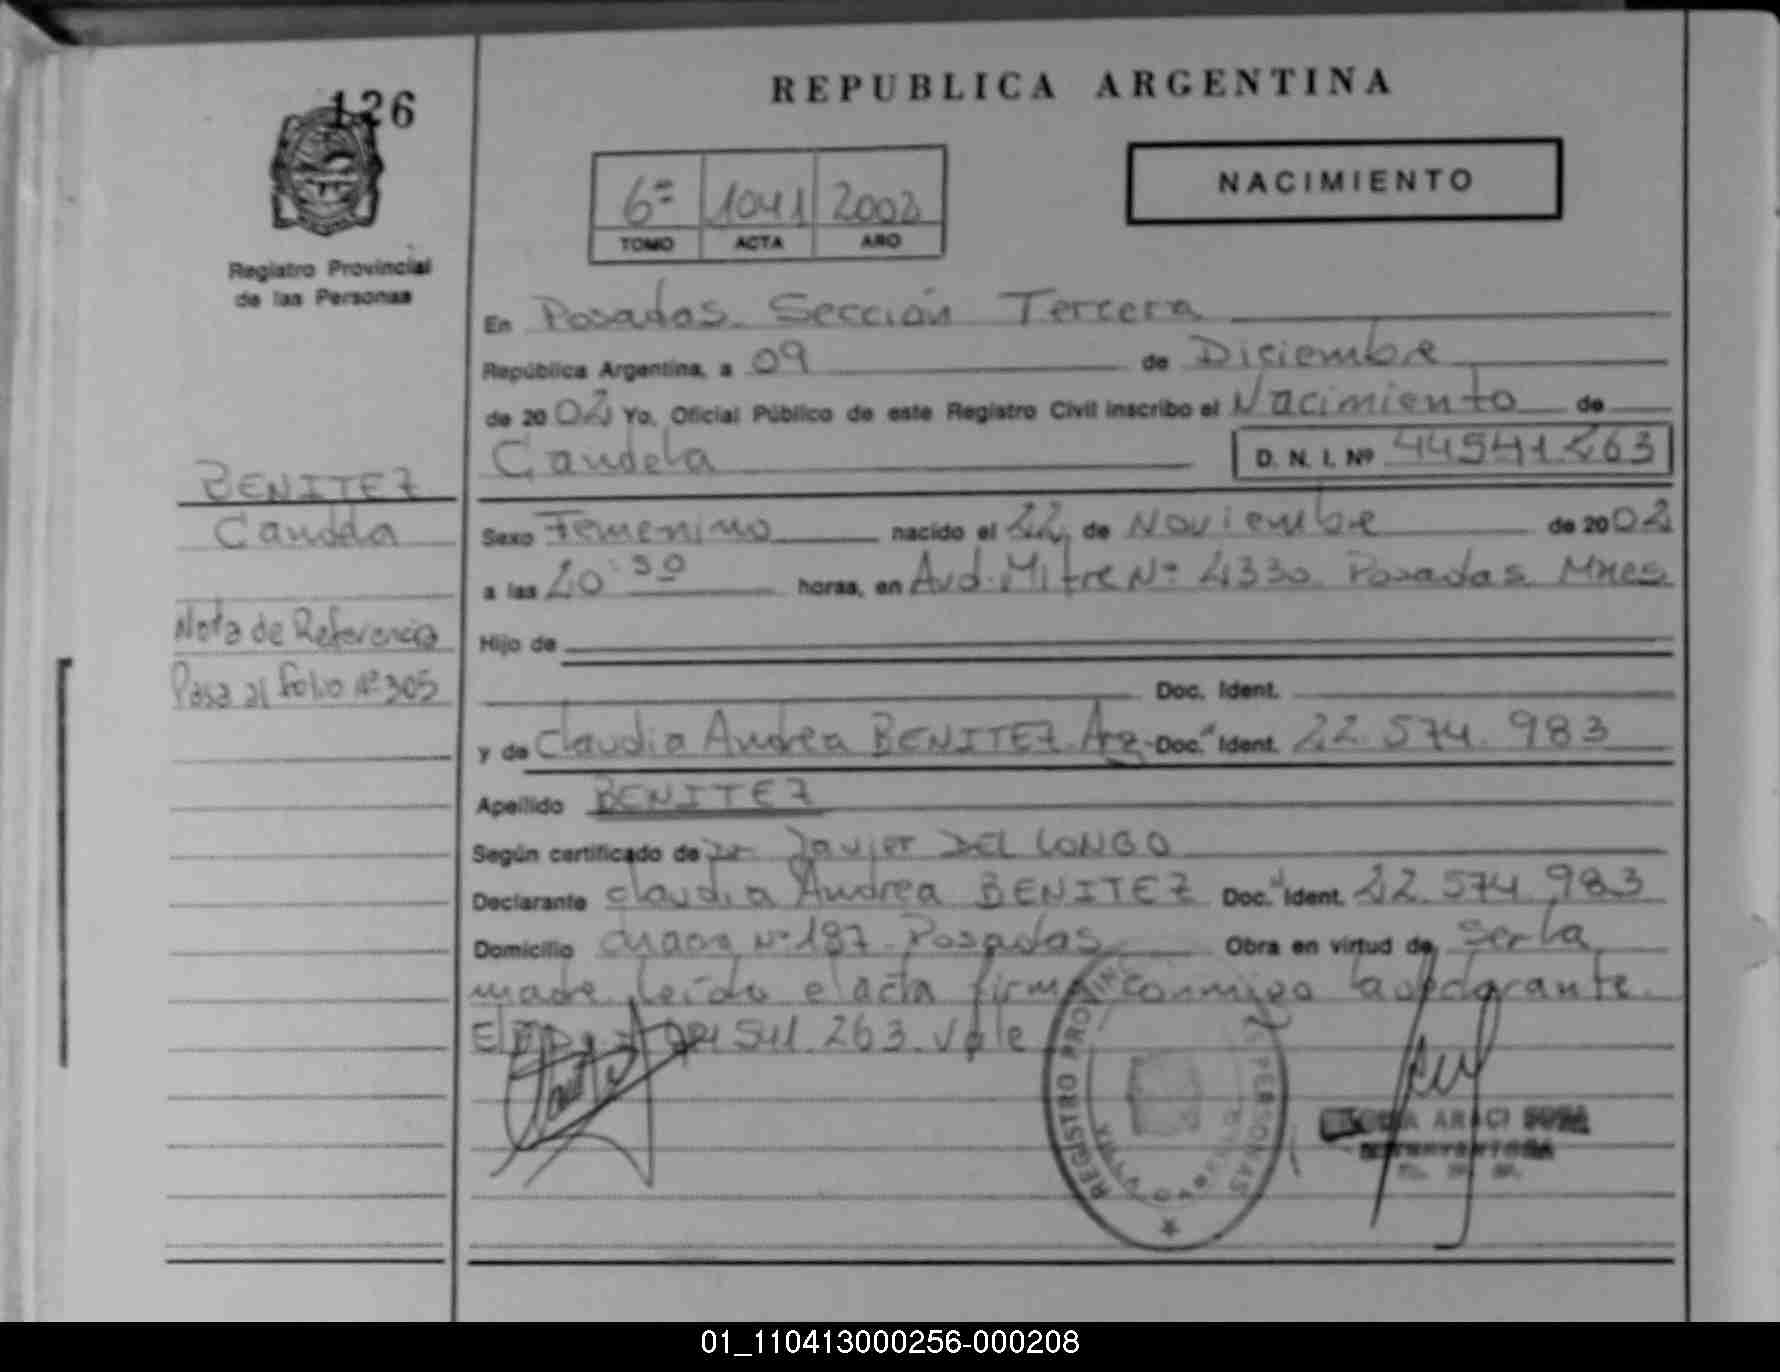 126
REPUBLICA ARGENTINA
NACIMIENTO
6ª 1041 2002
TOMO ACTA AÑO
Registro Provincial
de las Personas
En Posadas Sección Tercera
República Argentina, a 09 de Diciembre
de 2002 Yo, Oficial Público de este Registro Civil inscribo el Nacimiento de
Candela D. N. I. Nº 44541263
BENITEZ
Candela
Nota de Referencia
Pasa al folio Nº 305
Sexo Femenino nacido el 22 de Noviembre de 2002
a las 20:30 horas, en Avd. Mitre Nº 2330 Posadas Mnes
Hijo de
Doc. Ident.
y de Claudia Andrea BENITEZ Arg. Doc. Ident. 22.574.983
Apellido BENITEZ
Según certificado de Dr. Javier DEL LONGO
Declarante Claudia Andrea BENITEZ Doc. Ident. 22.574.983
Domicilio Chacra Nº 187 Posadas Obra en virtud de Ser la
madre leída el acta firma conmigo la declarante.
541.263. Vale
REGISTRO PROVINC PERSONAS
ARACI SOSA
01_110413000256-000208